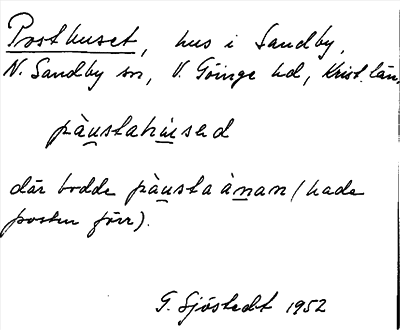 Posthuset, hus i Sandby,
N. Sandby sn, V. Göinge hd, Krist. län.
pàustahúsed
där bodde pàustaànan (hade
posten förr).
G. Sjöstedt 1952